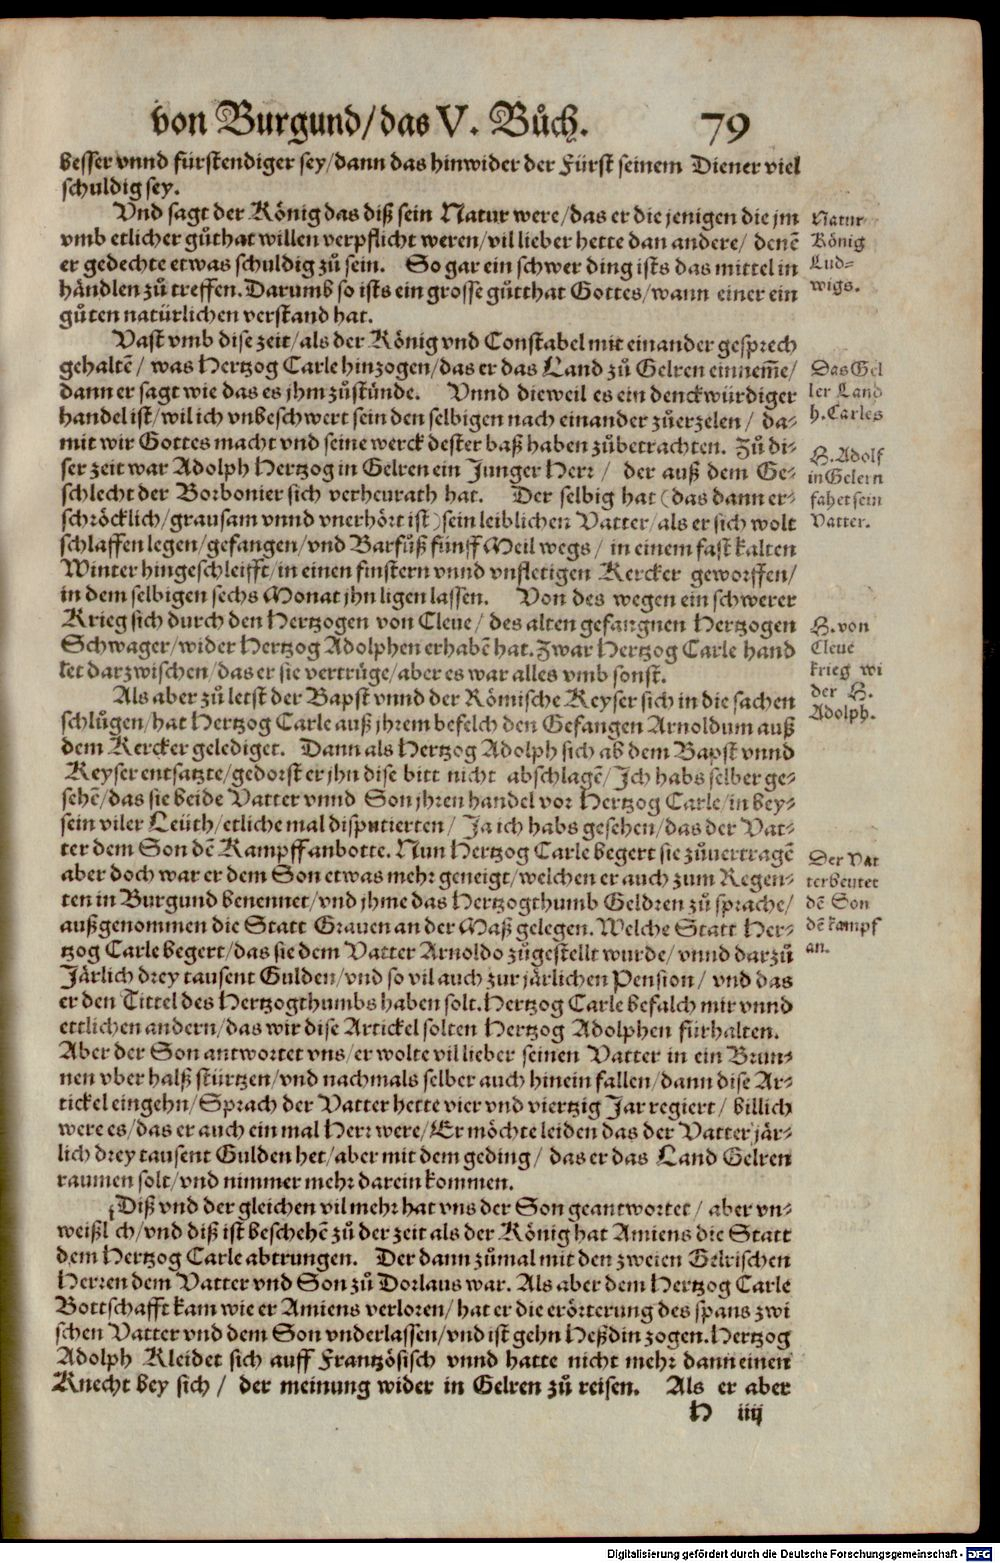 von Burgund/das V. Bůch. 79
besser vnnd fürstendiger sey/dann das hinwider der Fürst seinem Diener viel
schuldig sey.
Vnd sagt der König das diß sein Natur were/das er die jenigen die jm
vmb etlicher gůthat willen verpflicht weren/vil lieber hette dan andere/ denē
er gedechte etwas schuldig zů sein. So gar ein schwer ding ists das mittel in
händlen zů treffen. Darumb so ists ein grosse gůtthat Gottes/wann einer ein
gůten natürlichen verstand hat.
Natur
König
Lud-
wigs.
Vast vmb dise zeit/als der König vnd Constabel mit einander gesprech
gehaltē/ was Hertzog Carle hinzogen/das er das Land zů Gelren einnem̄e/
dann er sagt wie das es jhm zůstünde. Vnnd dieweil es ein denckwürdiger
handel ist/wil ich vnbeschwert sein den selbigen nach einander zůerzelen/ da-
mit wir Gottes macht vnd seine werck dester baß haben zůbetrachten. Zů di-
ser zeit war Adolph Hertzog in Gelren ein Junger Herr/ der auß dem Ge-
schlecht der Borbonier sich verheurath hat. Der selbig hat (das dann er-
schröcklich/grausam vnnd vnerhört ist) sein leiblichen Vatter/als er sich wolt
schlaffen legen/gefangen/vnd Barfůß fünff Meil wegs/ in einem fast kalten
Winter hingeschleifft/in einen finstern vnnd vnfletigen Kercker geworffen/
in dem selbigen sechs Monat jhn ligen lassen. Von des wegen ein schwerer
Krieg sich durch den Hertzogen von Cleue/ des alten gefangnen Hertzogen
Schwager/wider Hertzog Adolphen erhabē hat. Zwar Hertzog Carle hand
let darzwischen/das er sie vertrüge/aber es war alles vmb sonst.
Das Gel
ler Land
h. Carles
H. Adolf
in Gelern
fahet sein
Vatter.
H. von
Cleue
krieg wi
der H.
Adolph.
Als aber zů letst der Bapst vnnd der Römische Keyser sich in die sachen
schlůgen/hat Hertzog Carle auß jhrem befelch den Gefangen Arnoldum auß
dem Kercker gelediget. Dann als Hertzog Adolph sich ab dem Bapst vnnd
Keyser entsatzte/gedorst er jhn dise bitt nicht abschlagē/Ich habs selber ge-
sehē/das sie beide Vatter vnnd Son jhren handel vor Hertzog Carle/in bey-
sein viler Leüth/etliche mal disputierten/ Ja ich habs gesehen/das der Vat-
ter dem Son dē Kampff anbotte. Nun Hertzog Carle begert sie zůuertragē
aber doch war er dem Son etwas mehr geneigt/welchen er auch zum Regen-
ten in Burgund benennet/vnd jhme das Hertzogthumb Geldren zů sprache/
außgenommen die Statt Grauen an der Maß gelegen. Welche Statt Her-
tzog Carle begert/das sie dem Vatter Arnoldo zůgestellt wurde/vnnd darzů
Järlich drey tausent Gulden/vnd so vil auch zur järlichen Pension/ vnd das
er den Tittel des Hertzogthumbs haben solt. Hertzog Carle befalch mir vnnd
ettlichen andern/das wir dise Artickel solten Hertzog Adolphen fürhalten.
Aber der Son antwortet vns/er wolte vil lieber seinen Vatter in ein Brun-
nen vber halß stürtzen/vnd nachmals selber auch hinein fallen/dann dise Ar-
tickel eingehn/Sprach der Vatter hette vier vnd viertzig Jar regiert/ billich
were es/das er auch ein mal Herr were/Er möchte leiden das der Vatter jär-
lich drey tausent Gulden het/aber mit dem geding/ das er das Land Gelren
raumen solt/vnd nimmer mehr darein kommen.
Der Vat
ter beutet
dē Son
dē kampf
an.
Diß vnd der gleichen vil mehr hat vns der Son geantwortet/ aber vn-
weißl ch/vnd diß ist beschehē zů der zeit als der König hat Amiens die Statt
dem Hertzog Carle abtrungen. Der dann zůmal mit den zweien Gelrischen
Herren dem Vatter vnd Son zů Dorlans war. Als aber dem Hertzog Carle
Bottschafft kam wie er Amiens verloren/ hat er die erörterung des spans zwi
schen Vatter vnd dem Son vnderlassen/vnd ist gehn Heßdin zogen. Hertzog
Adolph Kleidet sich auff Frantzösisch vnnd hatte nicht mehr dann einen
Knecht bey sich/ der meinung wider in Gelren zů reisen. Als er aber
H iiij
Digitalisierung gefördert durch die Deutsche Forschungsgemeinschaft - DFG